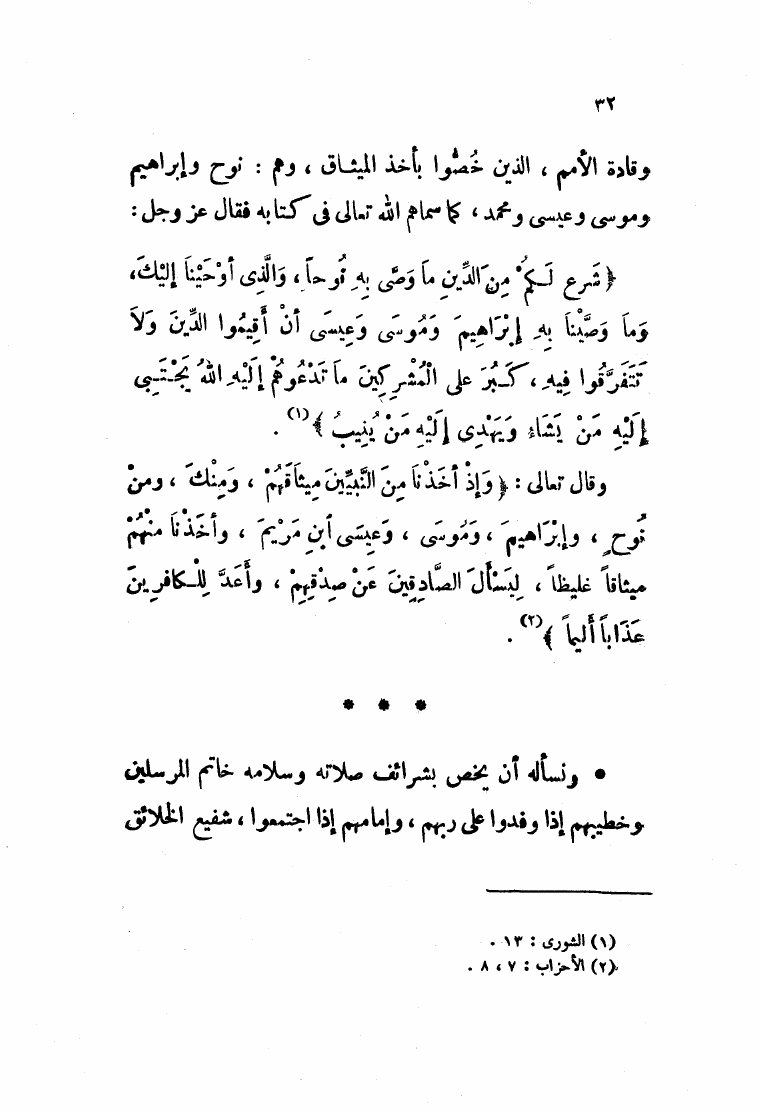 ٣٢
وقادة الأمم ، الذين خُصُّوا بأخذ الميثاق ، وهم : نوح وإبراهيم
وموسى وعيسى ومحمد ، كما سماهم الله تعالى فى كتابه فقال عز وجل :
﴿ شَرع لَكُمْ مِنَ الدِّينِ مَا وَصَّى بِهِ نُوحاً ، وَالَّذِى أوْحَيْنَا إلَيْكَ ،
وَمَا وَصَّيْنَا بِهِ إبْرَاهِيمَ وَمُوسَى وَعِيسَى أنْ أَقِيمُوا الدِّينَ وَلاَ
تَتَفَرَّقُوا فِيهِ ، كَبُرَ على الْمُشْرِكِينَ مَا تَدْعُوهُمْ إلَيْهِ اللهُ يَجْتَبِى
إلَيْهِ مَنْ يَشَاءَ وَيَهْدِى إلَيْهِ مَنْ يُنِيبُ ﴾(١) .
وقال تعالى : ﴿ وَإذْ أخَذْنَا مِنَ النَّبِيِّينَ مِيثَاقَهُمْ ، وَمِنْكَ ، ومنْ
نُوحٍ ، وإبْرَاهِيمَ ، وَمُوسَى ، وَعِيسَى أبنِ مَرْيمَ ، وأخَذْنَا مِنْهُمْ
ميثاقاً غليظاً ، لِيَسْأَلَ الصَّادِقِينَ عَنْ صِدْقِهِمْ ، وأعَدَّ لِلْكافرِينَ
عَذَاباً أليماً ﴾(٢) .
* * *
• ونسأله أن يخص بشرائف صلاته وسلامه خاتم المرسلين
وخطيبهم إذا وفدوا على ربهم ، وإمامهم إذا اجتمعوا ، شفيع الخلائق
(١) الشورى : ١٣ .
(٢) الأحزاب : ٧ ، ٨ .